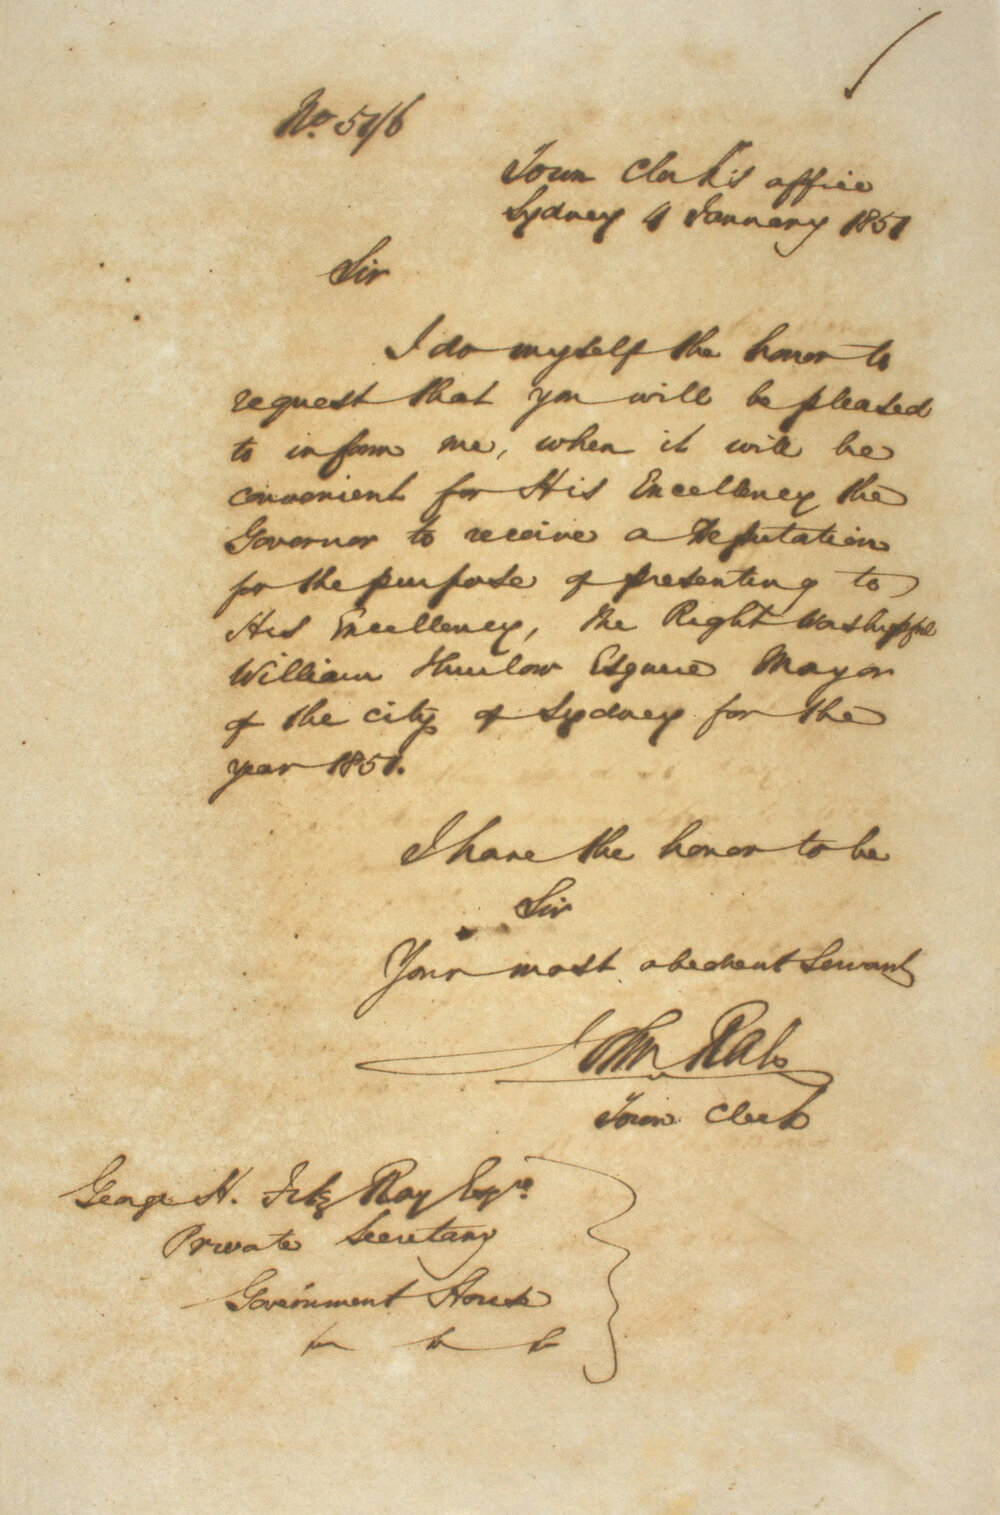 No. 51/6
Town Clerk's office
Sydney 4 January 1851
Sir
I do myself the honor to
request that you will be pleased
to inform me, when it will be
convenient for His Excellency the
Governor to receive a Deputation
for the purpose of presenting to
His Excellency, the Right Worshipful
William Thurlow Esquire Mayor
of the city of Sydney for the
year 1851.
I have the honor to be
Sir
Your most obedient Servant
John Rae
Town Clerk
George H. Fitz Roy Esqre
Private Secretary
Government House